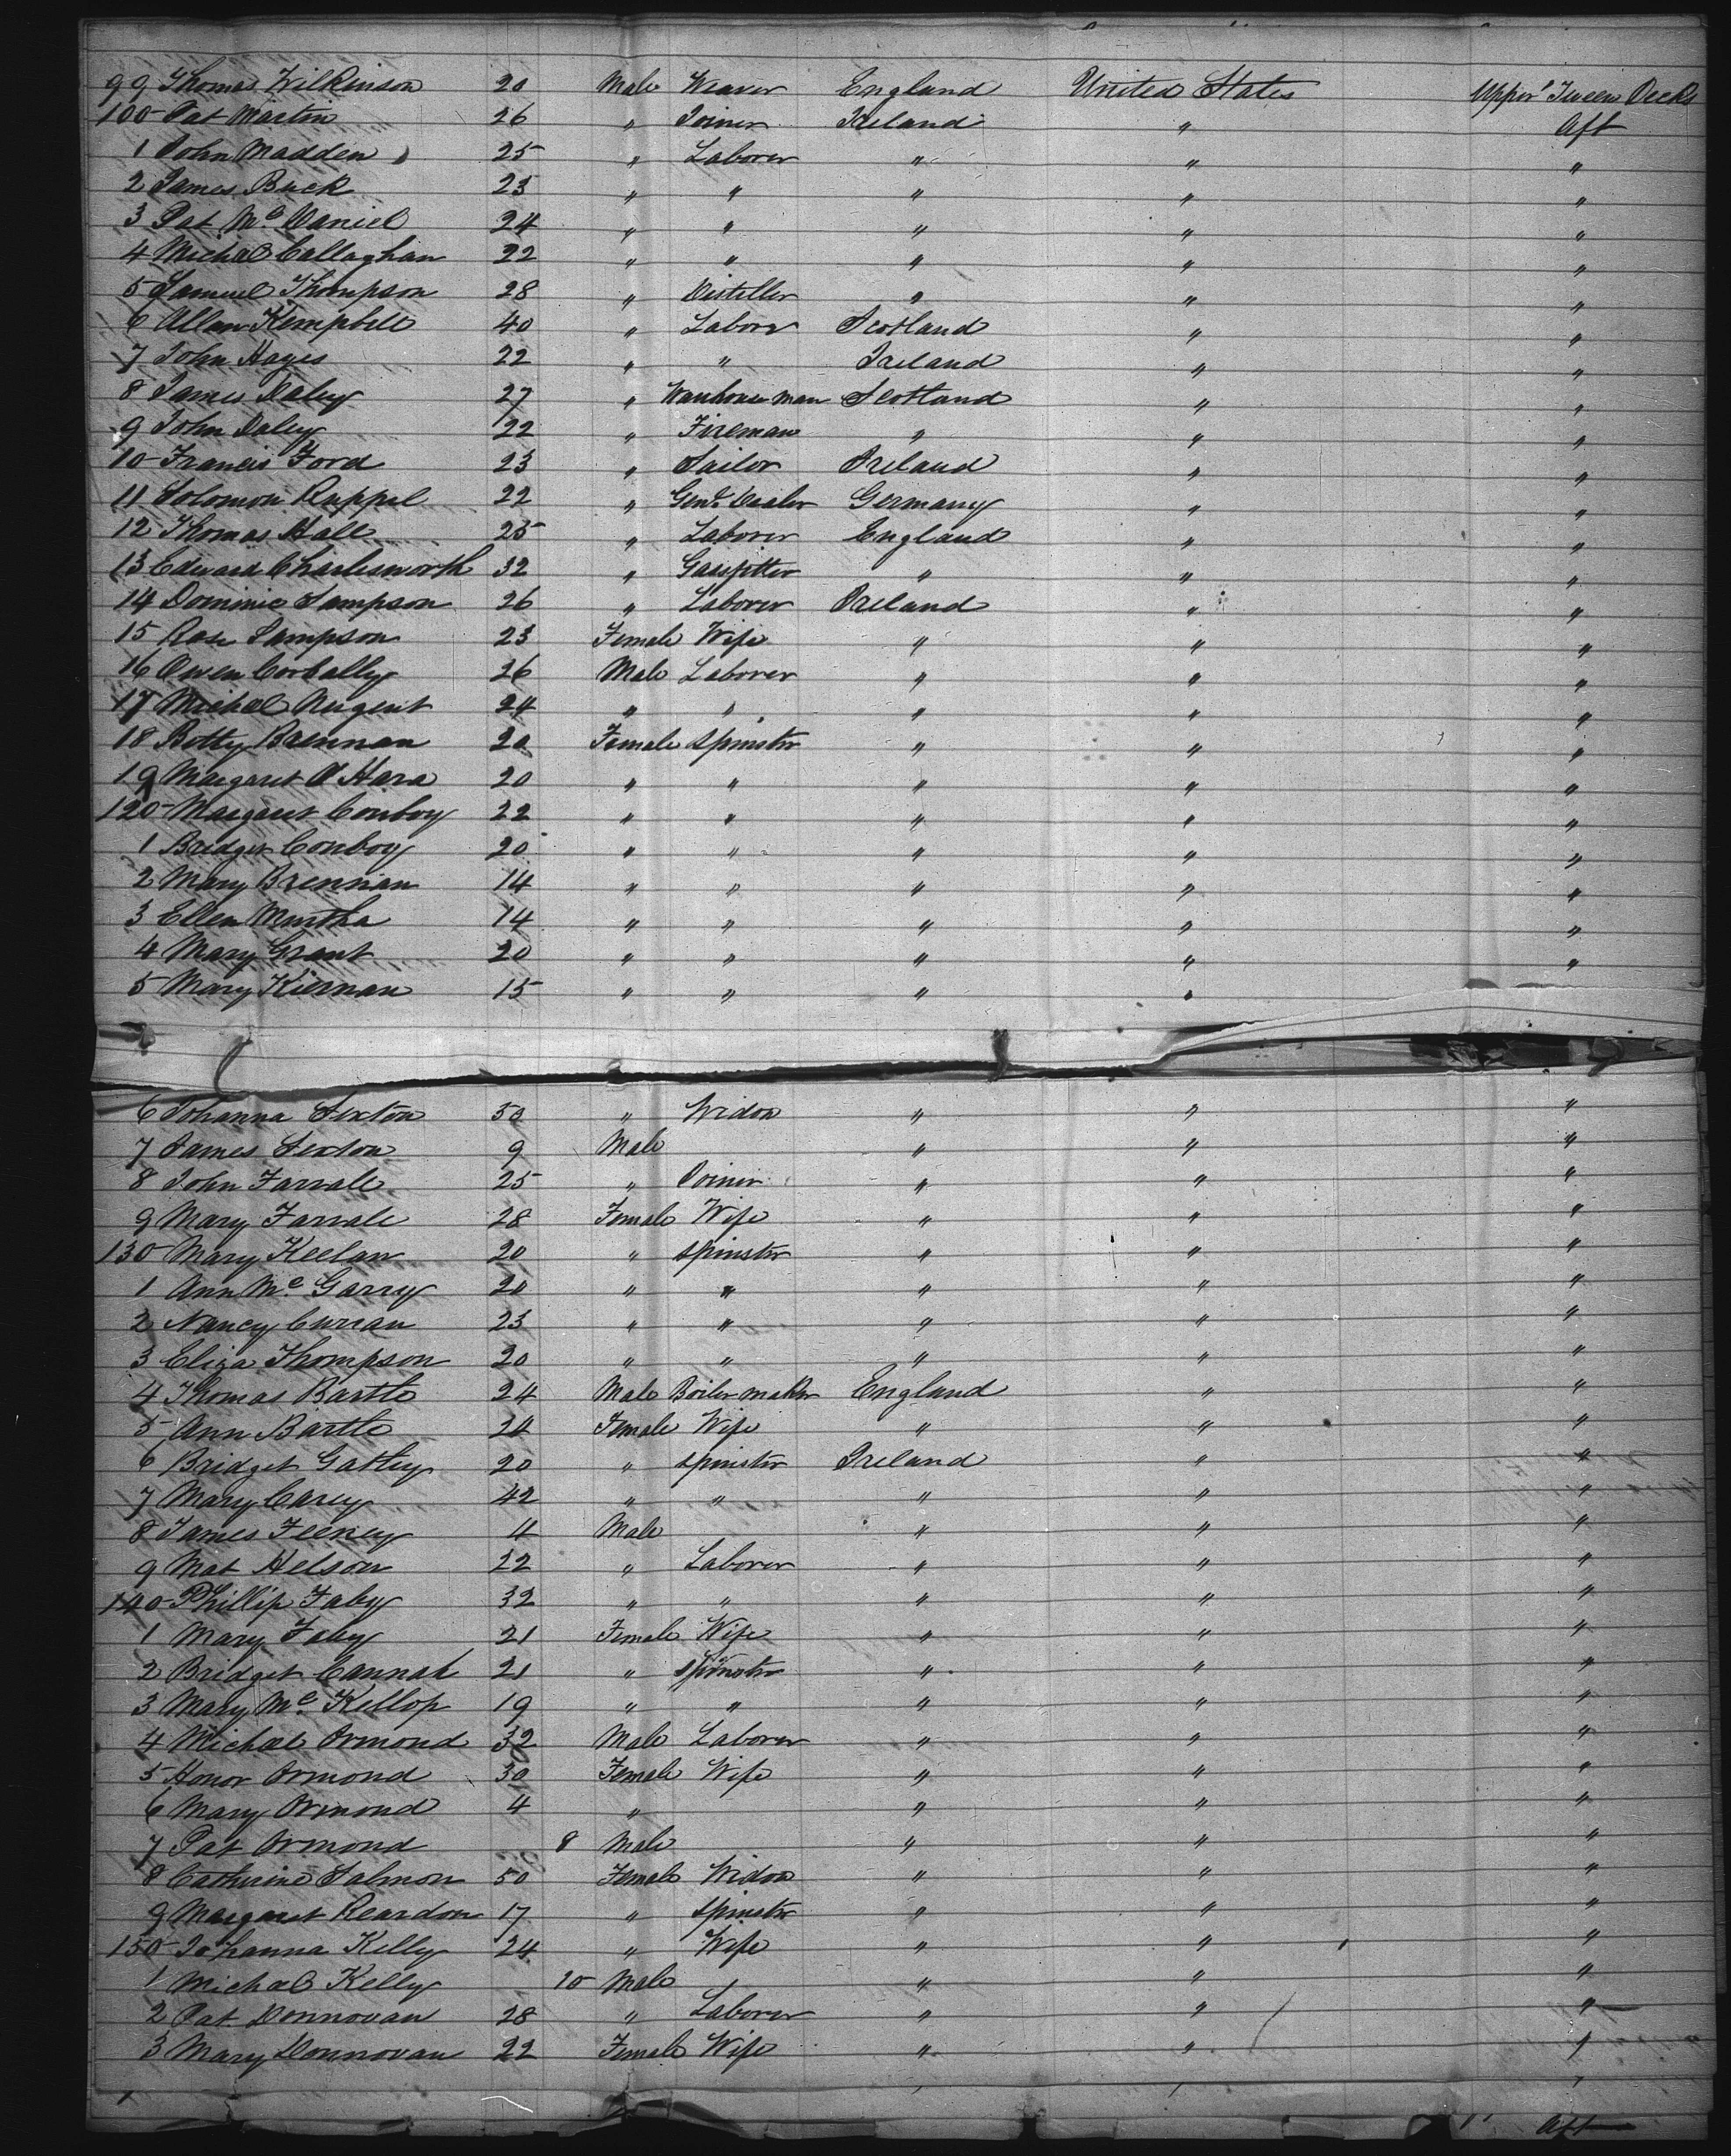 99 Thomas Wilkinson 20 Male Weaver England United States Upper Tween Decks
100 Pat Martin 26 " Joiner Ireland " Aft
1 John Madden 25 " Laborer " " "
2 James Buck 23 " " " " "
3 Pat Mc Daniel 24 " " " " "
4 Michal Callaghan 22 " " " " "
5 Samuel Thompson 28 " Distiller " " "
6 Allan Kempbell 40 " Laborer Scotland " "
7 John Hayes 22 " " Ireland " "
8 James Daley 27 " Warehouse man Scotland " "
9 John Daley 22 " Fireman " " "
10 Francis Ford 23 " Sailor Ireland " "
11 Solomon Ruppel 22 " Genl. Dealer Germany " "
12 Thomas Hall 25 " Laborer England " "
13 Edward Charlesworth 32 " Gassfitter " " "
14 Dominic Sampson 26 " Laborer Ireland " "
15 Rose Sampson 23 Female Wife " " "
16 Owen Corbally 26 Male Laborer " " "
17 Michael Nugent 24 " " " " "
18 Betty Brennan 20 Female Spinster " " "
19 Margaret O Hara 20 " " " " "
120 Margaret Conboy 22 " " " " "
1 Bridget Conboy 20 " " " " "
2 Mary Brennan 14 " " " " "
3 Ellen Murtha 14 " " " " "
4 Mary Grant 20 " " " " "
5 Mary Kiernan 15 " " " "
6 Johanna Sexton 50 " Widow " " "
7 James Sexton 9 Male " " "
8 John Farrale 25 " Joiner " " "
9 Mary Farrale 28 Female Wife " " "
130 Mary Keelan 20 " Spinster " " "
1 Ann Mc Garry 20 " " " " "
2 Nancy Curran 23 " " " " "
3 Eliza Thompson 20 " " " " "
4 Thomas Bartle 24 Male Boiler maker England " "
5 Ann Bartle 24 Female Wife " " "
6 Bridget Gatley 20 " Spinster Ireland " "
7 Mary Carey 42 " " " " "
8 James Feeney 11 Male " " "
9 Mat Nelson 22 " Laborer " " "
140 Phillip Faby 32 " " " " "
1 Mary Faby 21 Female Wife " " "
2 Bridget Cannah 21 " Spinster " " "
3 Mary Mc Kellop 19 " " " " "
4 Michael Ormond 32 Male Laborer " " "
5 Honor Ormond 30 Female Wife " " "
6 Mary Ormond 4 " " " "
7 Pat Ormond 8 Male " " "
8 Catherine Salmon 50 Female Widow " " "
9 Margaret Reardon 17 " Spinster " " "
150 Johanna Kelly 24 " Wife " " "
1 Michal Kelly 10 Male " " "
2 Pat Donnovan 28 " Laborer " " "
3 Mary Donnovan 22 Female Wife " " "
Aft